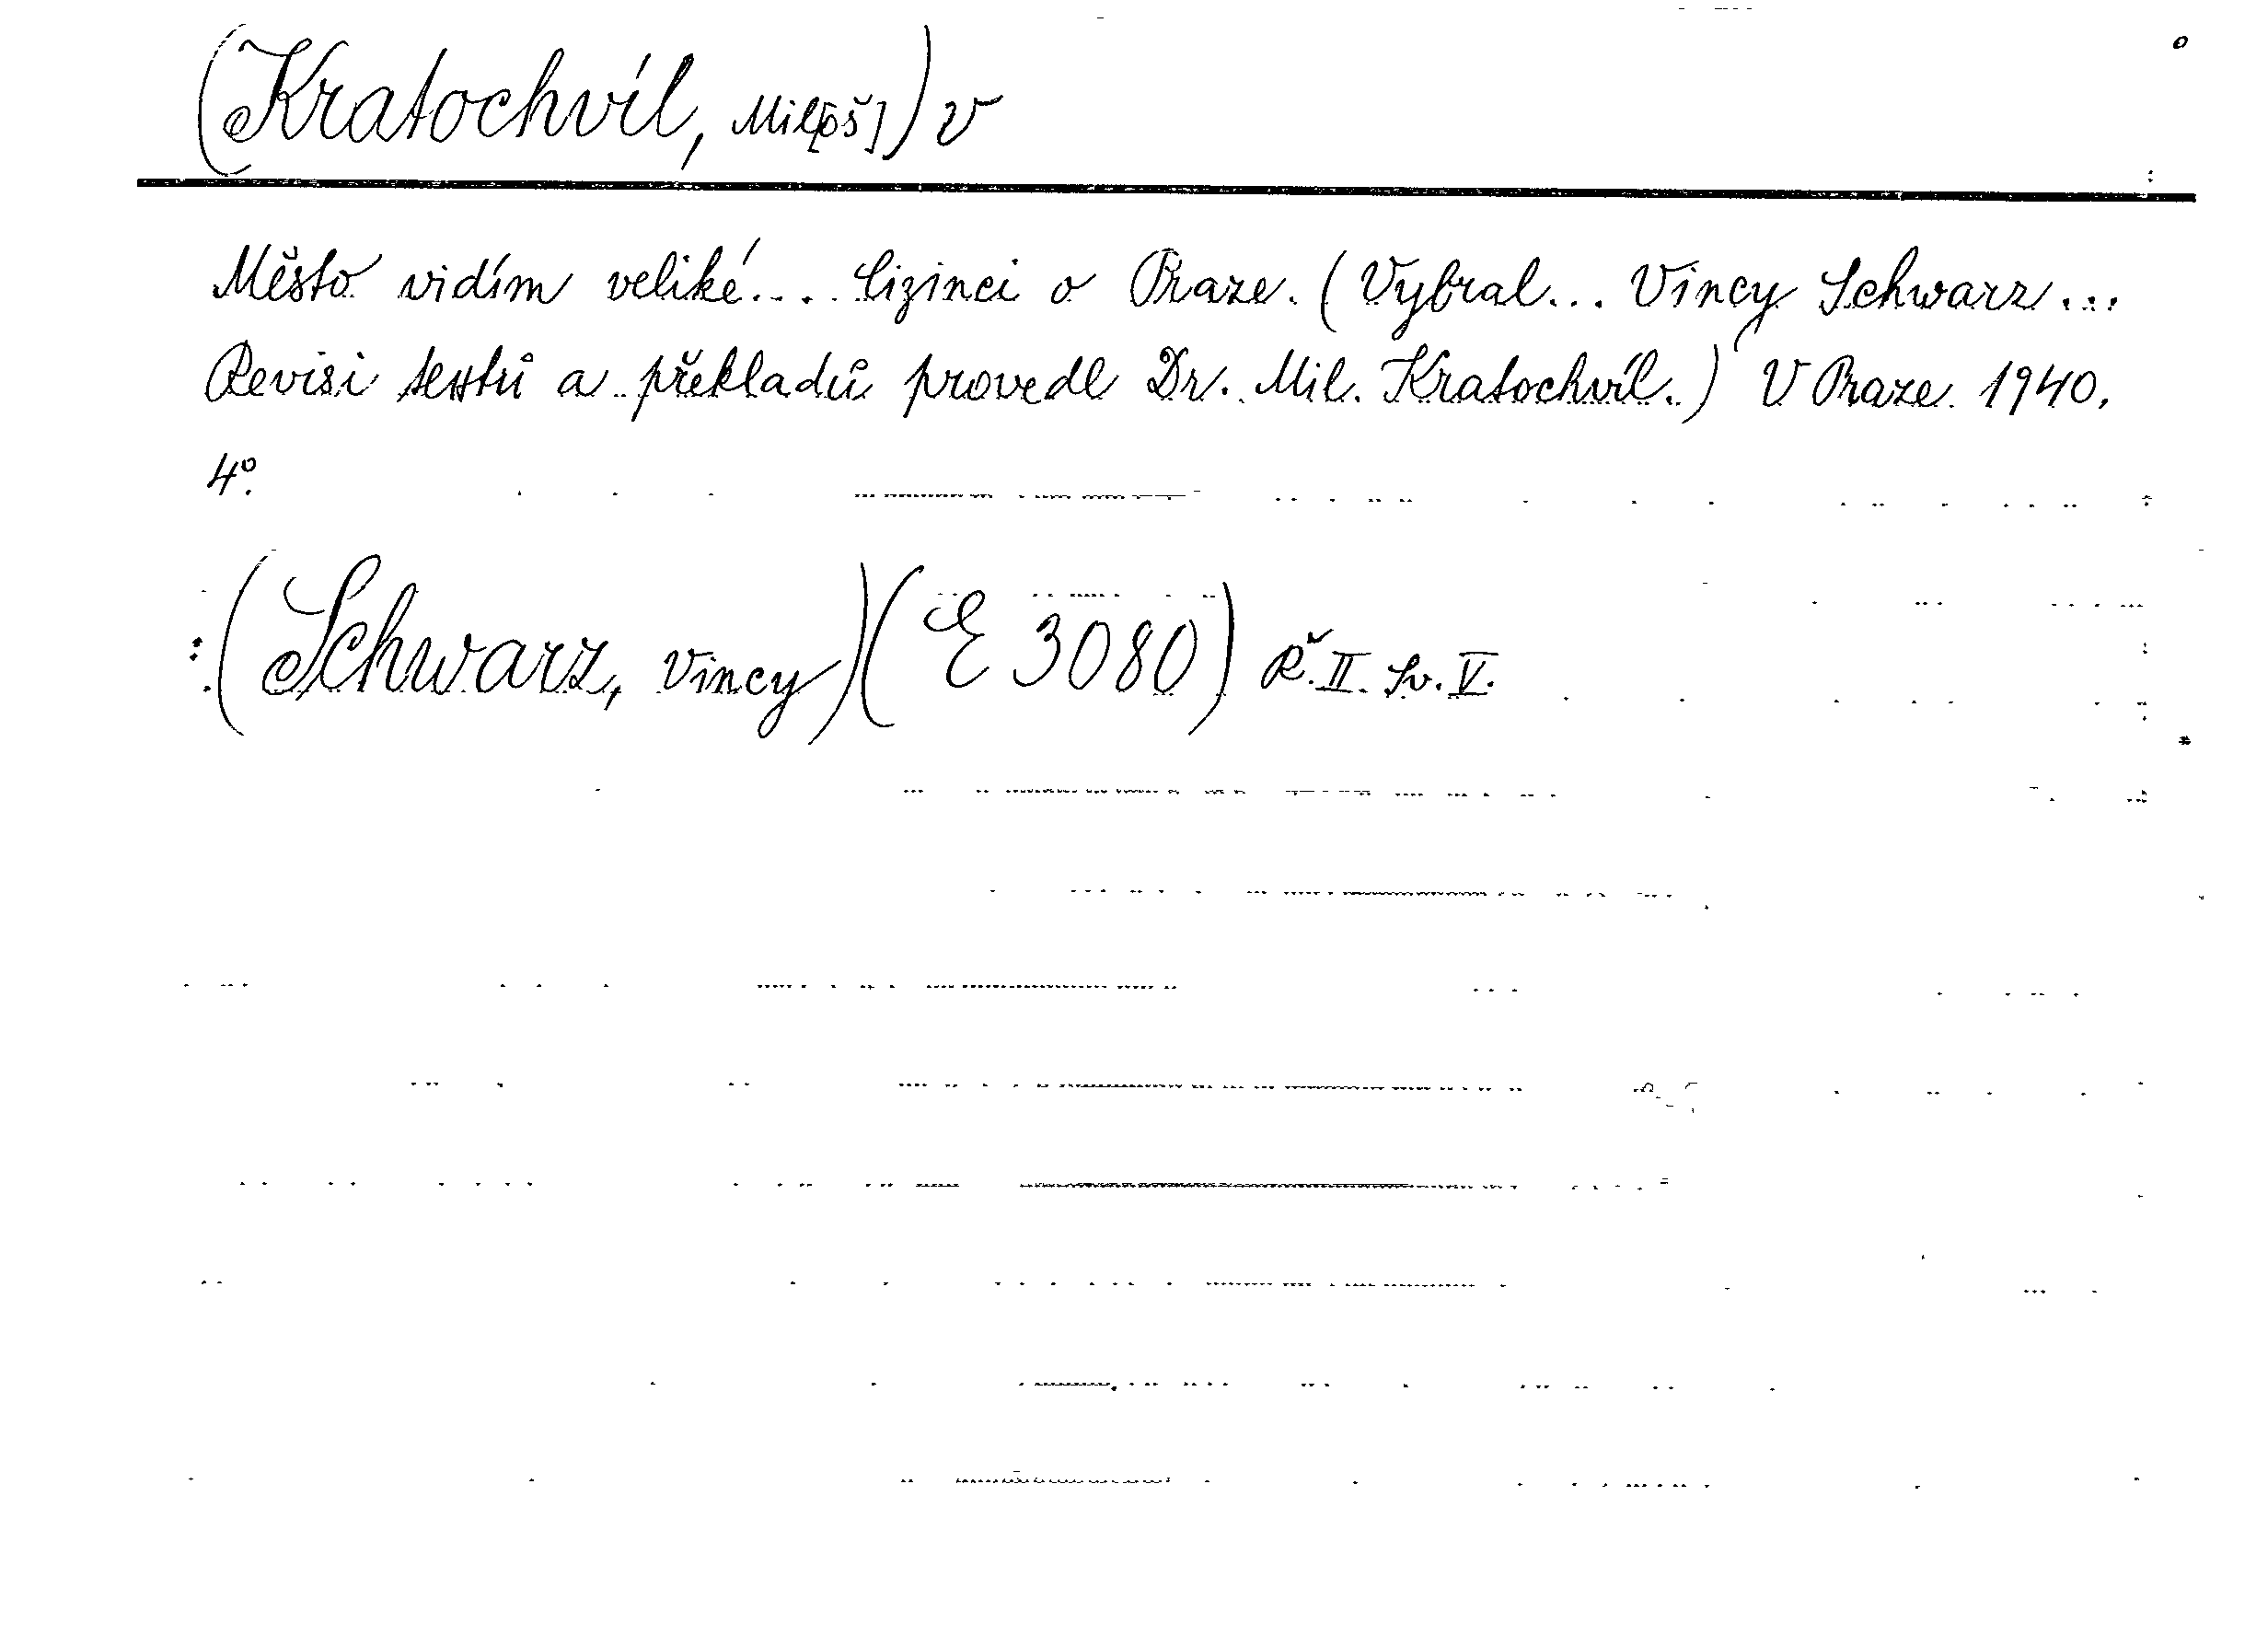 (Kratochvíl, Mil[oš]) v
Město vidím veliké... Cizinci o Praze. (Vybral... Vincy Schwarz...
Revisi textů a překladů provedl Dr. Mil. Kratochvíl.) V Praze 1940.
4°.
(Schwarz, Vincy) (E 3080) Ř. II. Sv. V.